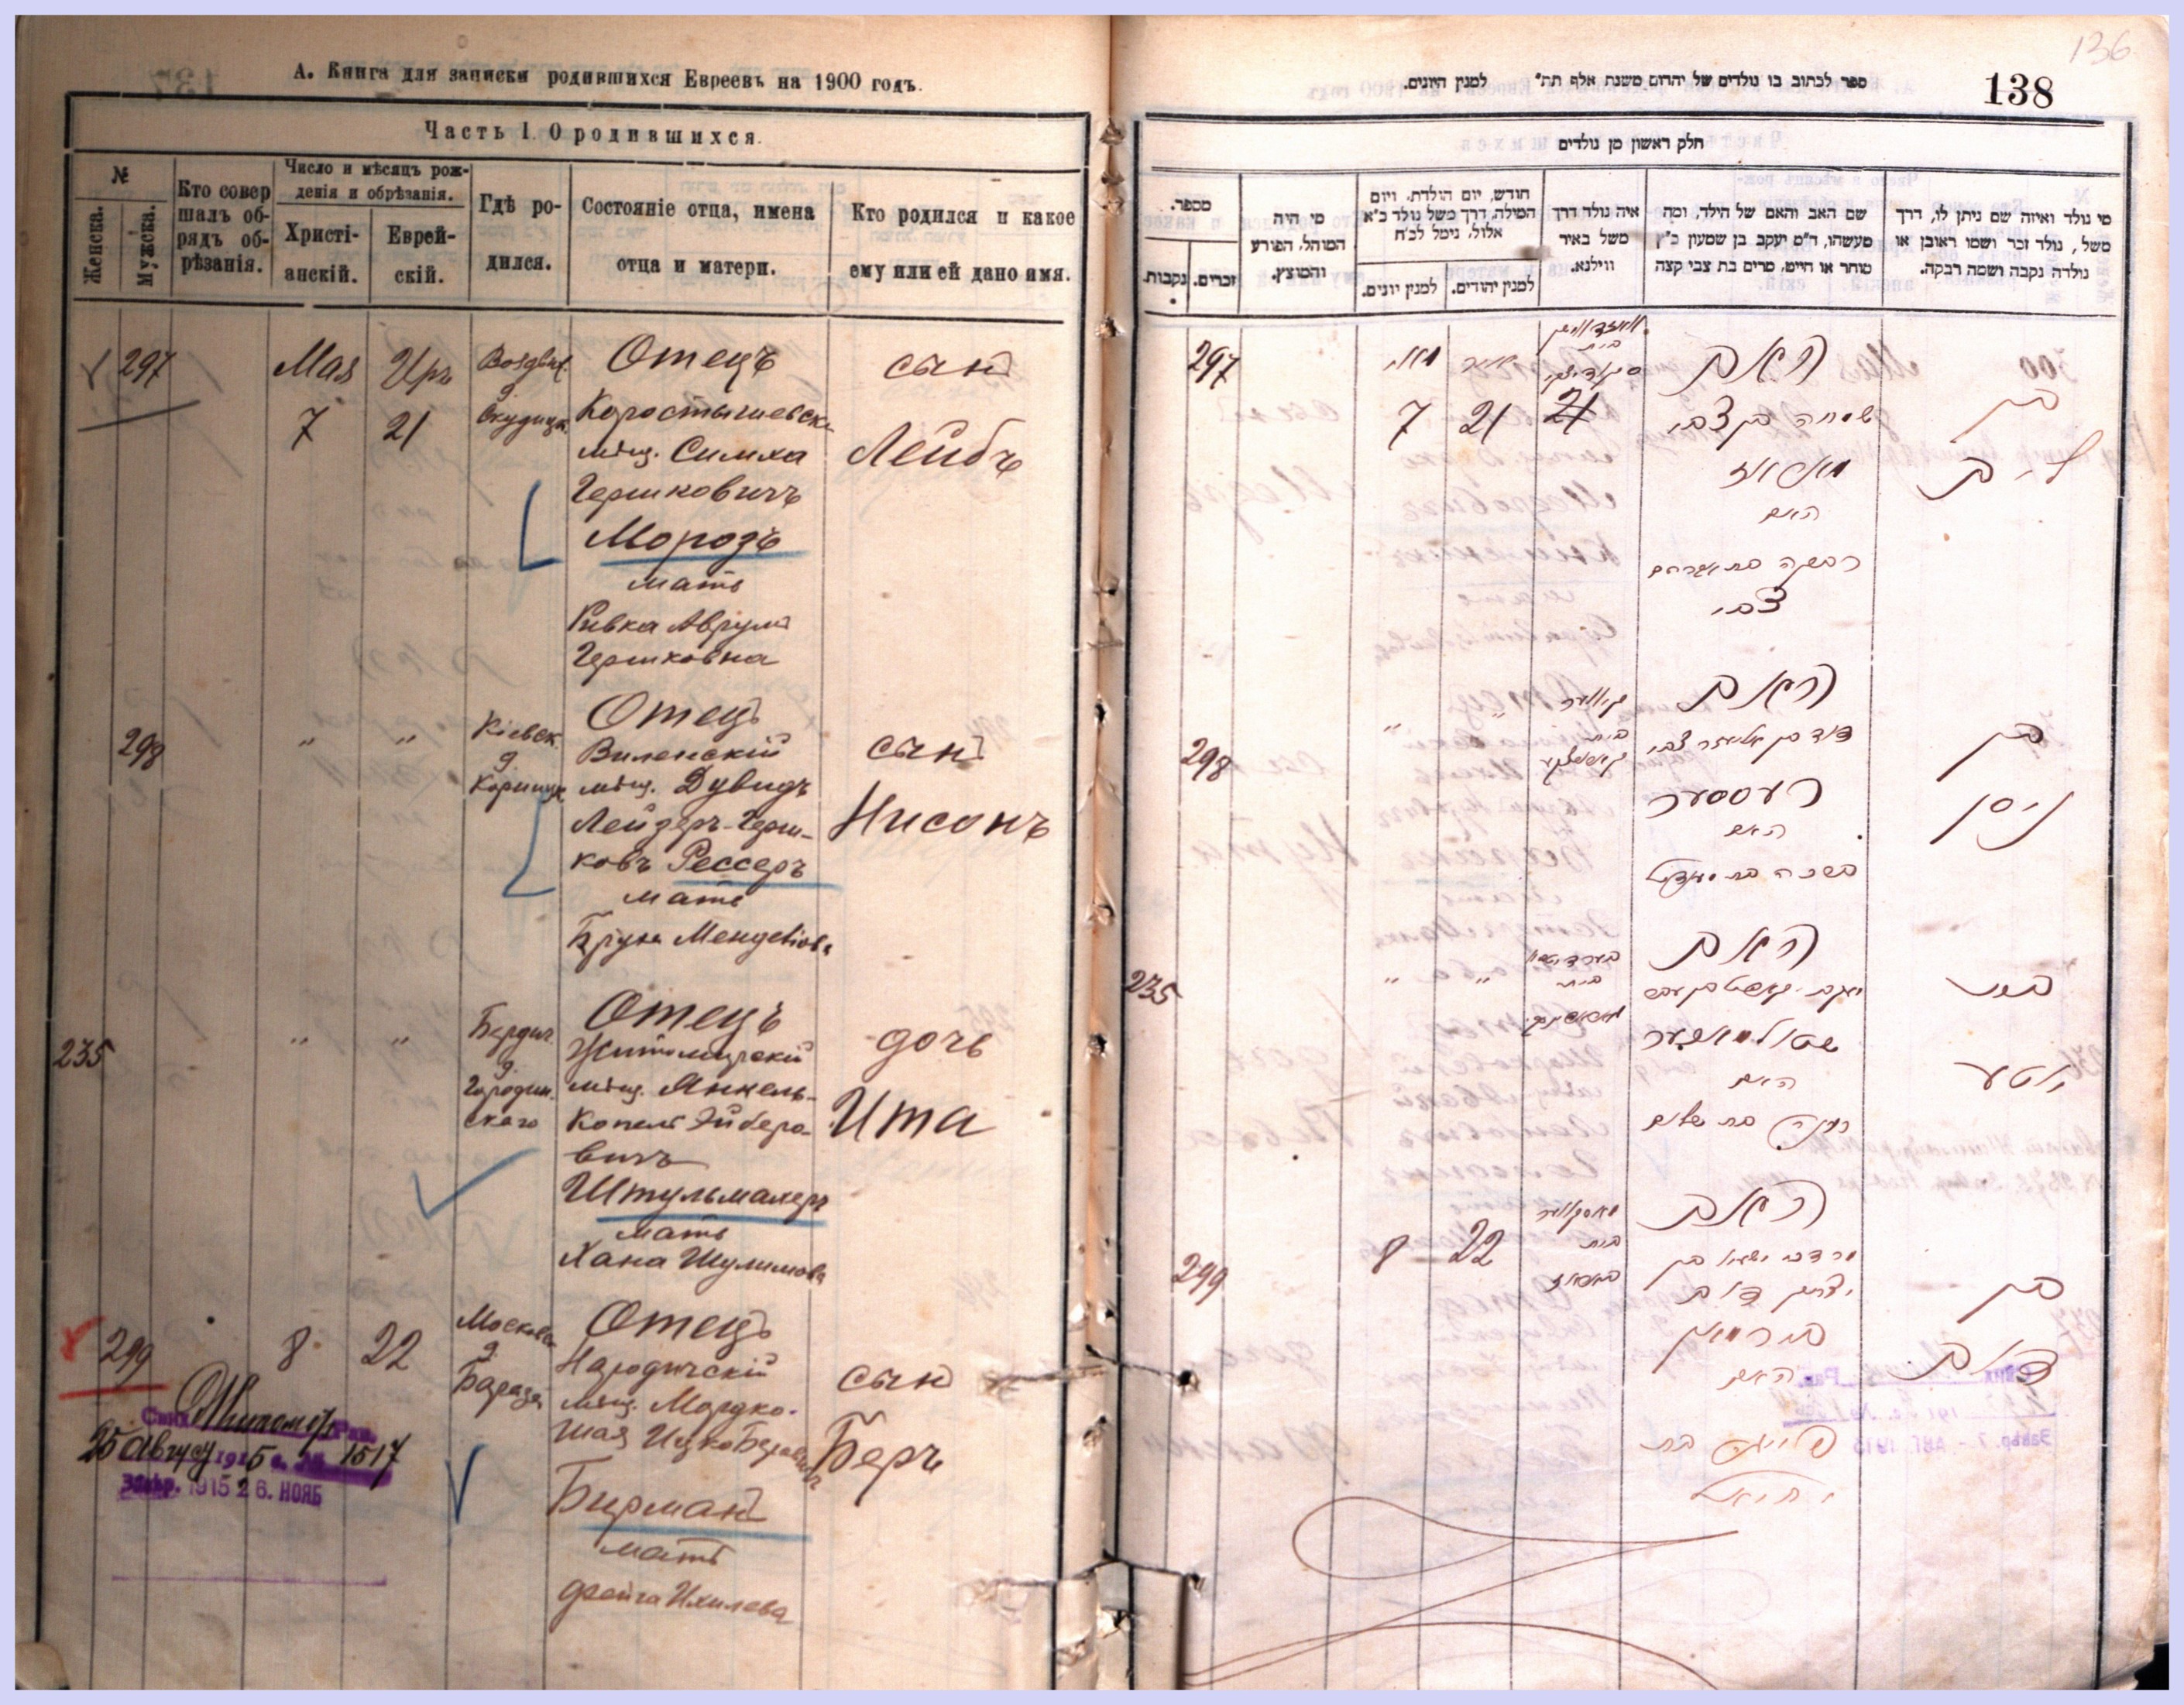 А. Книга для записки родившихся Евреевъ на 1900 годъ.
Часть I. О родившихся.
№
Женска.
Мужска.
Кто совер
шалъ об-
рядъ об-
рѣзанія.
Число и мѣсяцъ рож-
денія и обрѣзанія.
Христі-
анскій.
Еврей-
скій.
Гдѣ ро-
дился.
Состояніе отца, имена
отца и матери.
Кто родился и какое
ему или ей дано имя.
297
Мая
7
Иръ
21
Отецъ
Коростышевск.
мѣщ. Симха
Гершковичъ
Морозъ
мать
Ривка Аврумъ
Гершковна
сынъ
Лейбъ
298
" "
Кіевск.
д.
Отецъ
Виленскій
мѣщ. Дувидъ
Лейзеръ-Герш-
ковъ Рессеръ
мать
Менделіова
сынъ
Нисонъ
235
" "
Бердич.
д.
Городин.
скаго
Отецъ
Житомирскій
мѣщ. Янкель-
Копель Эйберо-
вичъ
Штульмахеръ
мать
Хана Шулимова
дочь
Ита
299
8 22
Московс.
д.
Отецъ
Народичскій
мѣщ. Мордко-
Шая Ицко Беровичъ
Бирманъ
мать
Фейга Ихилева
сынъ
Беръ
Житомір
25 Август 1915 г. № 1517
Завѣр. 1915 26. НОЯБ
136
138
ספר לכתוב בו נולדים של יהודים משנת אלף תת״ למנין היונים.
חלק ראשון מן נולדים
מספר.
זכרים.
נקבות.
מי היה
המוהל, הפורע
והמוצץ.
חודש, יום הולדת, ויום
המילה, דרך משל נולד כ״א
אלול, נימל לכ״ח
למנין יהודים.
למנין יונים.
איה נולד דרך
משל באיר
ווילנא.
שם האב והאם של הילד, ומה
מעשהו, ד״מ יעקב בן שמעון כ״ץ
סוחר או חייט, מרים בת צבי קצה
מי נולד ואיזה שם ניתן לו, דרך
משל, נולד זכר ושמו ראובן או
נולדה נקבה ושמה רבקה.
297
מאי
7
אייר
21
21
האב
שמחה בן צבי
מאראז
האם
רבקה בת אברהם
צבי
בן
ליב
298
" "
האב
דוד בן אליעזר צבי
רעססער
האם
בן
ניסן
235
" "
האב
שטולמאכער
האם
חנה בת שלום
בת
יטע
299
8 22
האב
בירמאן
האם
פייגא בת
יחיאל
בן